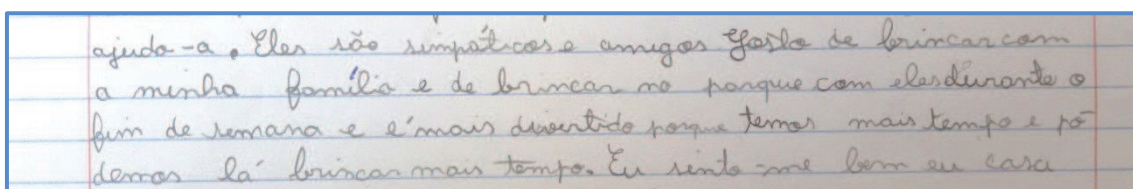 ajuda-a. Eles são simpáticos e amigos gosto de brincar com
a minha família e de brincar no parque com eles durante o
fim de semana e é mais divertido porque temos mais tempo e pó
demos lá brincar mais tempo. Eu sinto-me bem eu casa